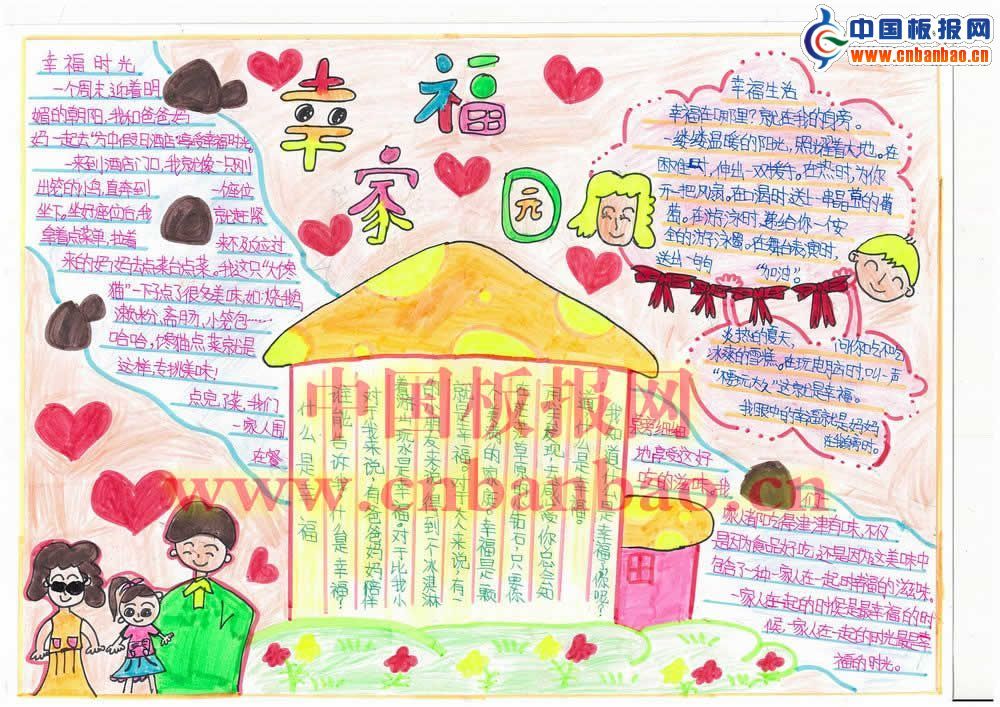 中国板报网
www.cnbanbao.cn
幸福
家园
幸福时光
一个周末,迎着明
媚的朝阳,我和爸爸妈
妈一起去"方中假日酒店"享受幸福时光。
一来到酒店门口,我就像一只刚
出笼的小鸟,直奔到一个座位
坐下。坐好座位后,我就赶紧
拿着点菜单,拉着来不及应过
来的妈妈去点菜台点菜。我这只"大馋
猫"一下子点了很多美味,如:烧鹅
濑粉、斋肠、小笼包……
哈哈,馋猫点菜就是
这样,专挑美味!
点完了菜,我们
一家人围
在餐
旁细细
地享受这好
吃的滋味。我
们一
家人都吃得津津有味,不仅
是因为食品好吃,还是因为这美味中
包含了一种一家人在一起时幸福的滋味。
一家人在一起的时候是最幸福的时
候,一家人在一起的时光是最幸
福的时光。
幸福生活
幸福在哪里?就在我的身旁。
一缕缕温暖的阳光,照耀着大地。在
困难时,伸出一双援手。在热时,为你
开一把风扇。在口渴时送上一串晶莹的葡
萄。在游泳时,递给你一个安
全的游泳圈。在舞台表演时,
送出一句的"加油"。
炎热的夏天,问你吃不吃
冰爽的雪糕。在玩电脑时,叫一声
"不要玩太久"这就是幸福。
我眼中的幸福就是妈妈
在我身旁时。
什么是幸福
谁能告诉我什么是幸福?
对于我来说,有爸爸妈妈陪伴
着游山玩水是幸福。对于比我小
的小朋友来说,得到一个冰淇淋
就是幸福。对于大人来说,有一
个美满的家庭。幸福是一颗
在茫茫草原的钻石,只要你
用心去发现,去感受,你总会知
道什么是幸福。
我知道什么是幸福了,你呢?
中国板报网
www.cnbanbao.cn